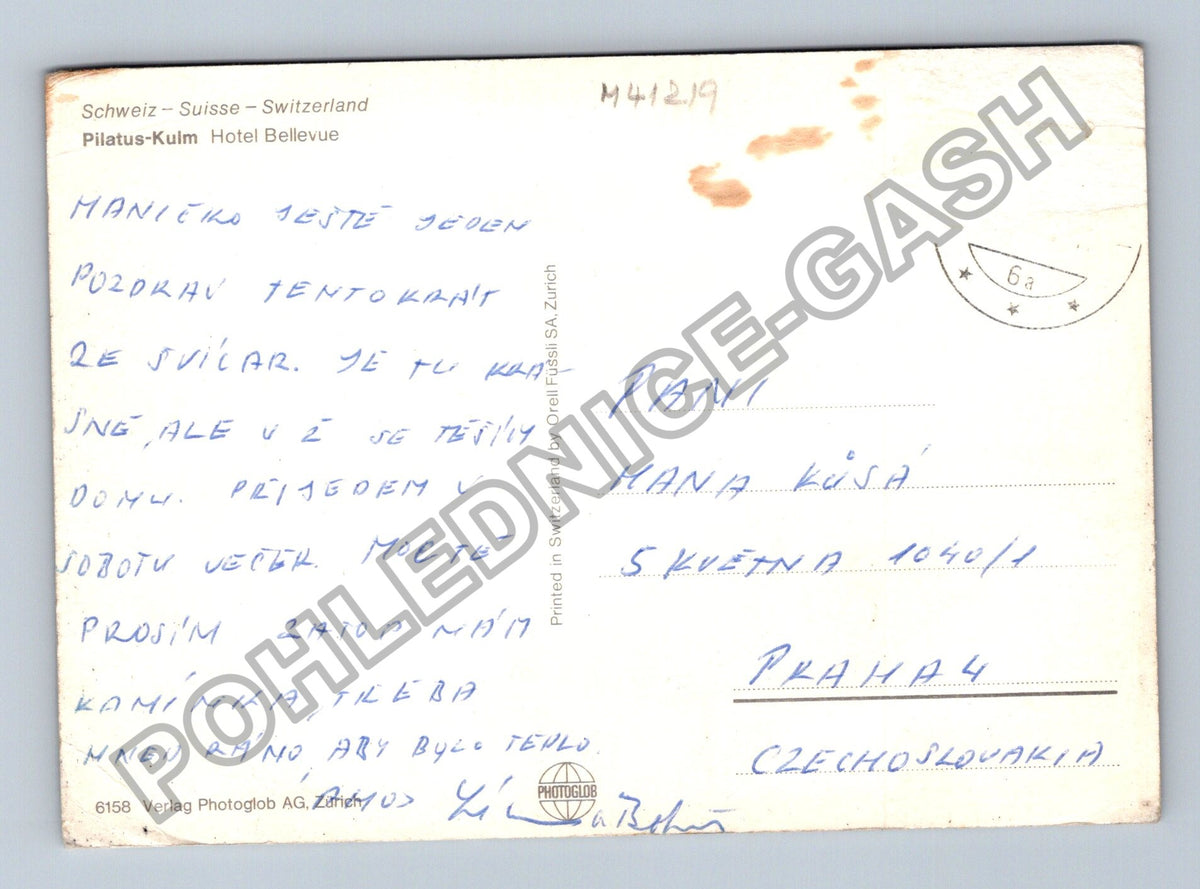 M41219
Schweiz – Suisse – Switzerland
Pilatus-Kulm Hotel Bellevue
MANIČKO JEŠTĚ JEDEN
POZDRAV TENTOKRÁT
ZE ŠVÍCAR. JE TU KRÁ-
SNĚ, ALE UŽ SE TĚŠÍM
DOMU. PŘIJEDEM V
SOBOTU VEČER.
PROSÍM ZATOP NÁM
KAMÍNKA, TŘEBA
HNED RÁNO, ABY BYLO TEPLO.
6158 Verlag Photoglob AG, Zürich
PHOTOGLOB
Printed in Switzerland by Orell Füssli SA, Zurich
6a
PANI
HANA KŮSÁ
5 KVĚTNA 1040/1
PRAHA 4
CZECHOSLOVAKIA
POHLEDNICE-GASH